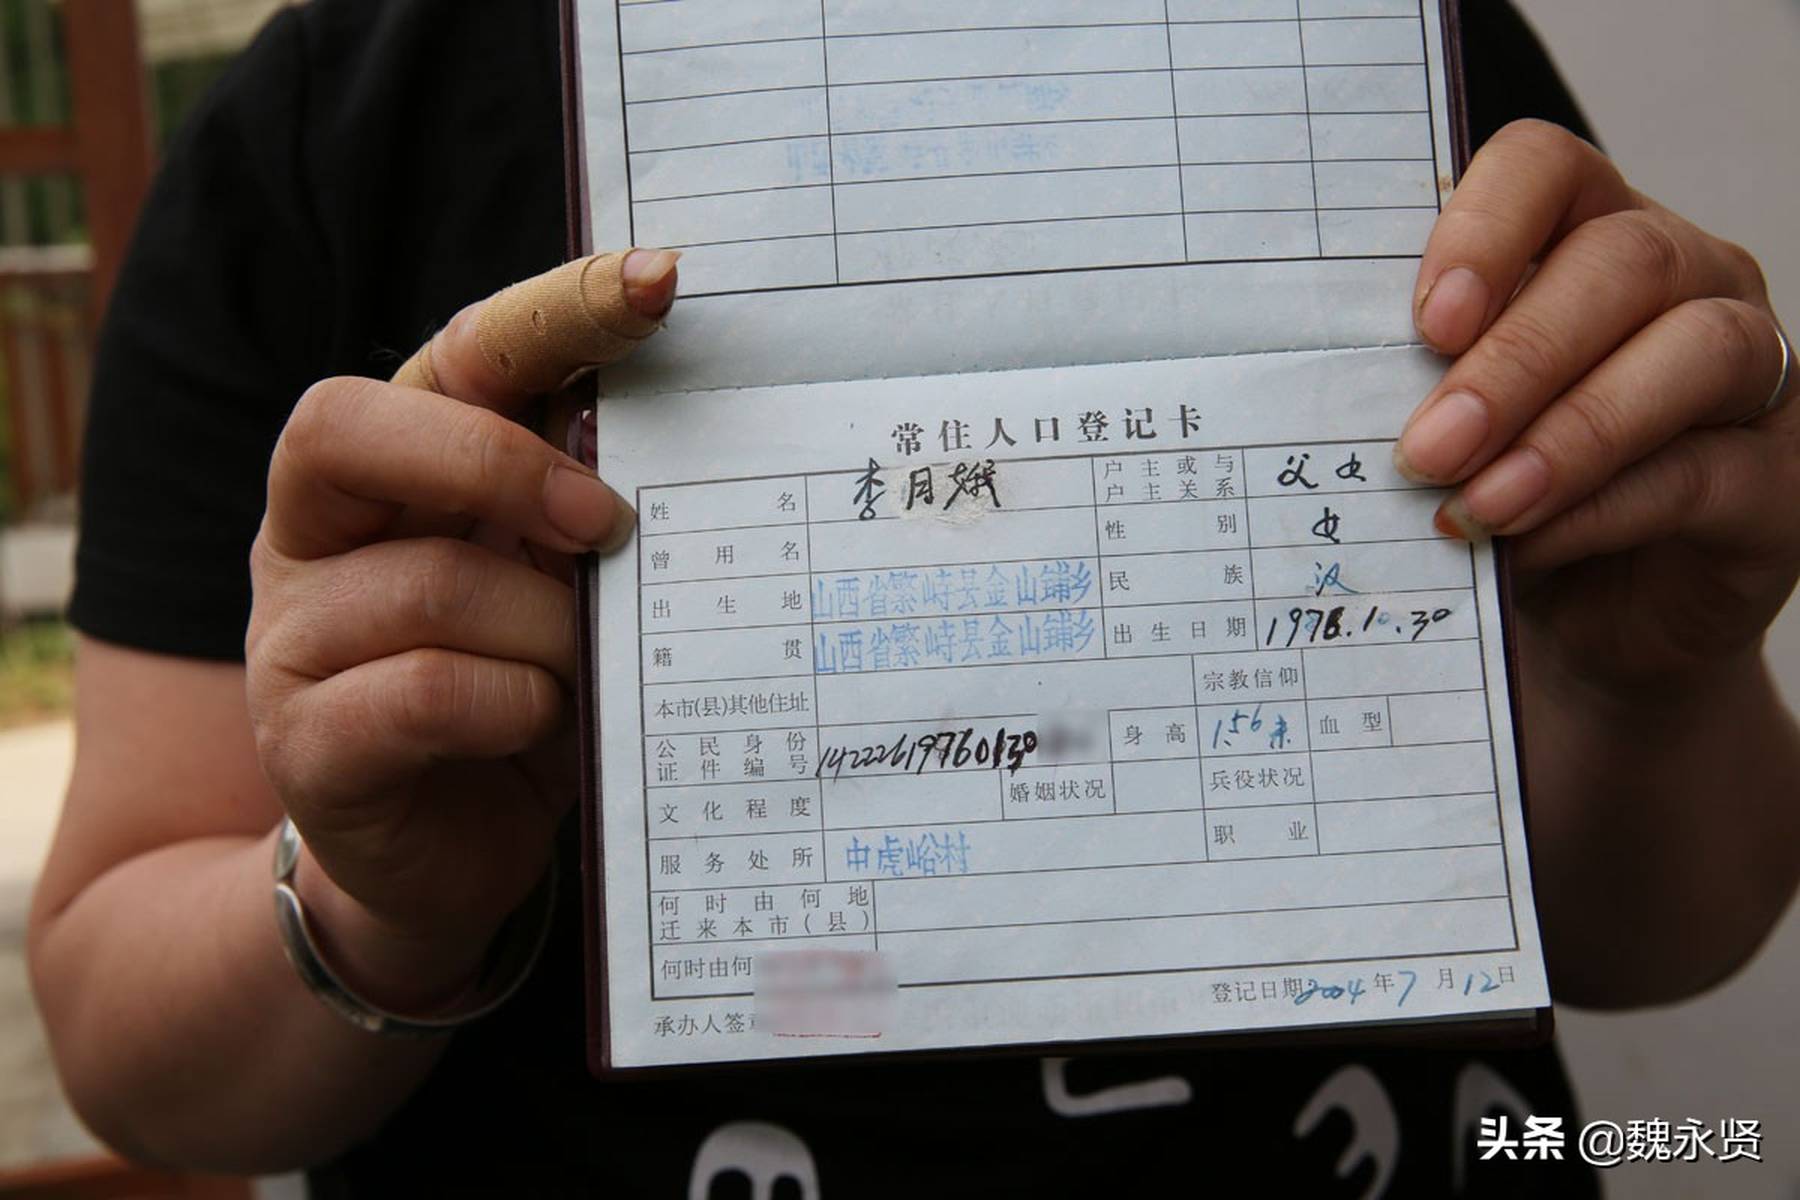 常住人口登记卡
姓名 李月娥 户主或与户主关系 父女
曾用名 性别 女
出生地 山西省繁峙县金山铺乡 民族 汉
籍贯 山西省繁峙县金山铺乡 出生日期 1976.10.30
本市(县)其他住址 宗教信仰
公民身份证件编号 14222619760130 身高 1.56米 血型
文化程度 婚姻状况 兵役状况
服务处所 中虎峪村 职业
何时由何地迁来本市(县)
何时由何
登记日期2004年7月12日
承办人签章
头条 @魏永贤